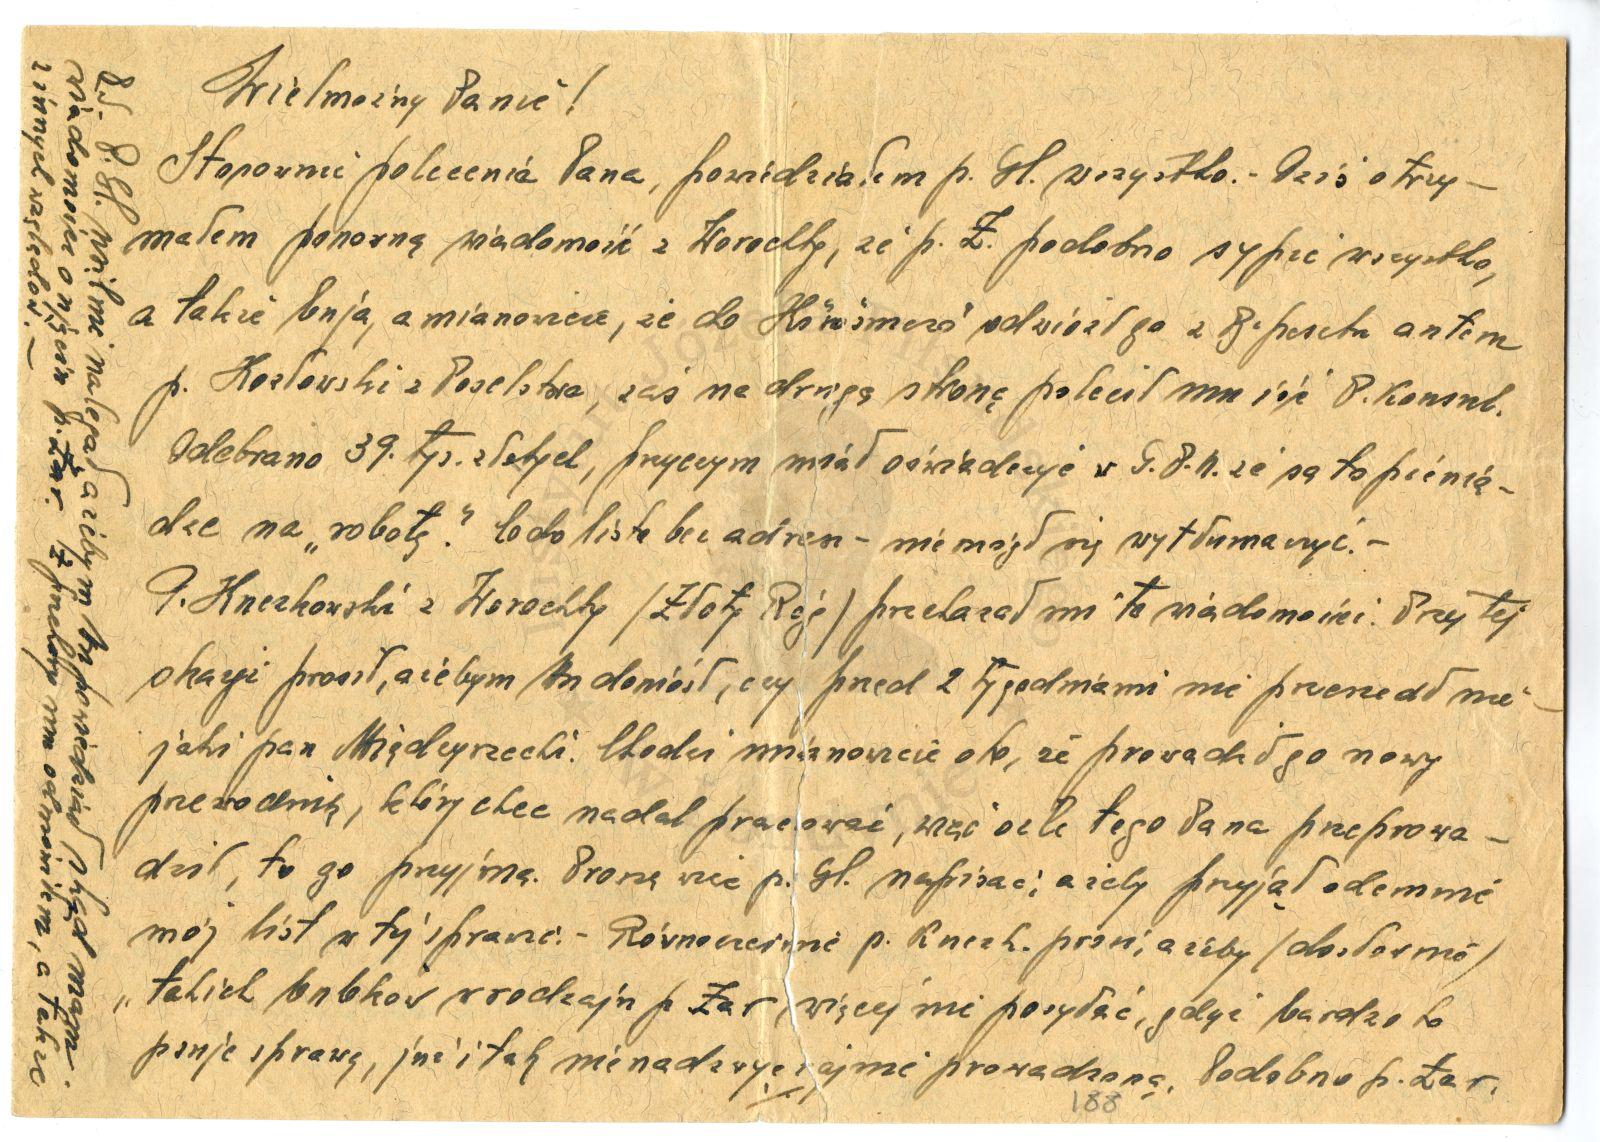 Wielmożny Panie!
Stosownie polecenia Pana, powiedziałem p. Gl. wszystko.- Dziś otrzy-
małem ponowną wiadomość z Worochty, że p. Ż. podobno sypie wszystko,
a także buja, a mianowicie, że do Kőrösmező odwiózł go z Bpesztu autem
p. Kozłowski z Poselstwa, zaś na drugą stronę polecił mu iść P. Konsul.
Odebrano 39. tys. złotych, przyczym miał oświadczyć w G.P.U. że są to pienią-
dze na „robotę". Codo listu bez adresu - nie mógł się wytłumaczyć.-
P. Kneżkowski z Worochty /Złoty Róg/ przekazał mi te wiadomości. Przy tej
okazji prosił, ażebym Mu doniósł, czy przed 2 tygodniami nie przeszedł nie-
jaki pan Międzyrzecki. Chodzi mianowicie o to, że prowadził go nowy
przewodnik, który chce nadal pracować, więc o ile tego Pana przeprowa-
dził, to go przyjmą. Proszę więc p. Gl. napisać, ażeby przyjął odemnie
mój list w tej sprawie.- Równocześnie p. Knezk. prosi, ażeby /dosłownie/
„takich bubków w rodzaju p. Żar, więcej nie posyłać, gdyż bardzo to
psuje sprawę, już i tak nienadzwyczajnie prowadzoną. Podobno p. Żar.
188
PS. P. Gl. nalegał ażebym Mu powiedział skąd mam
wiadomości o ujęciu p. Żar. Z przekory mu odmówiłem, a także
z innych względów.-